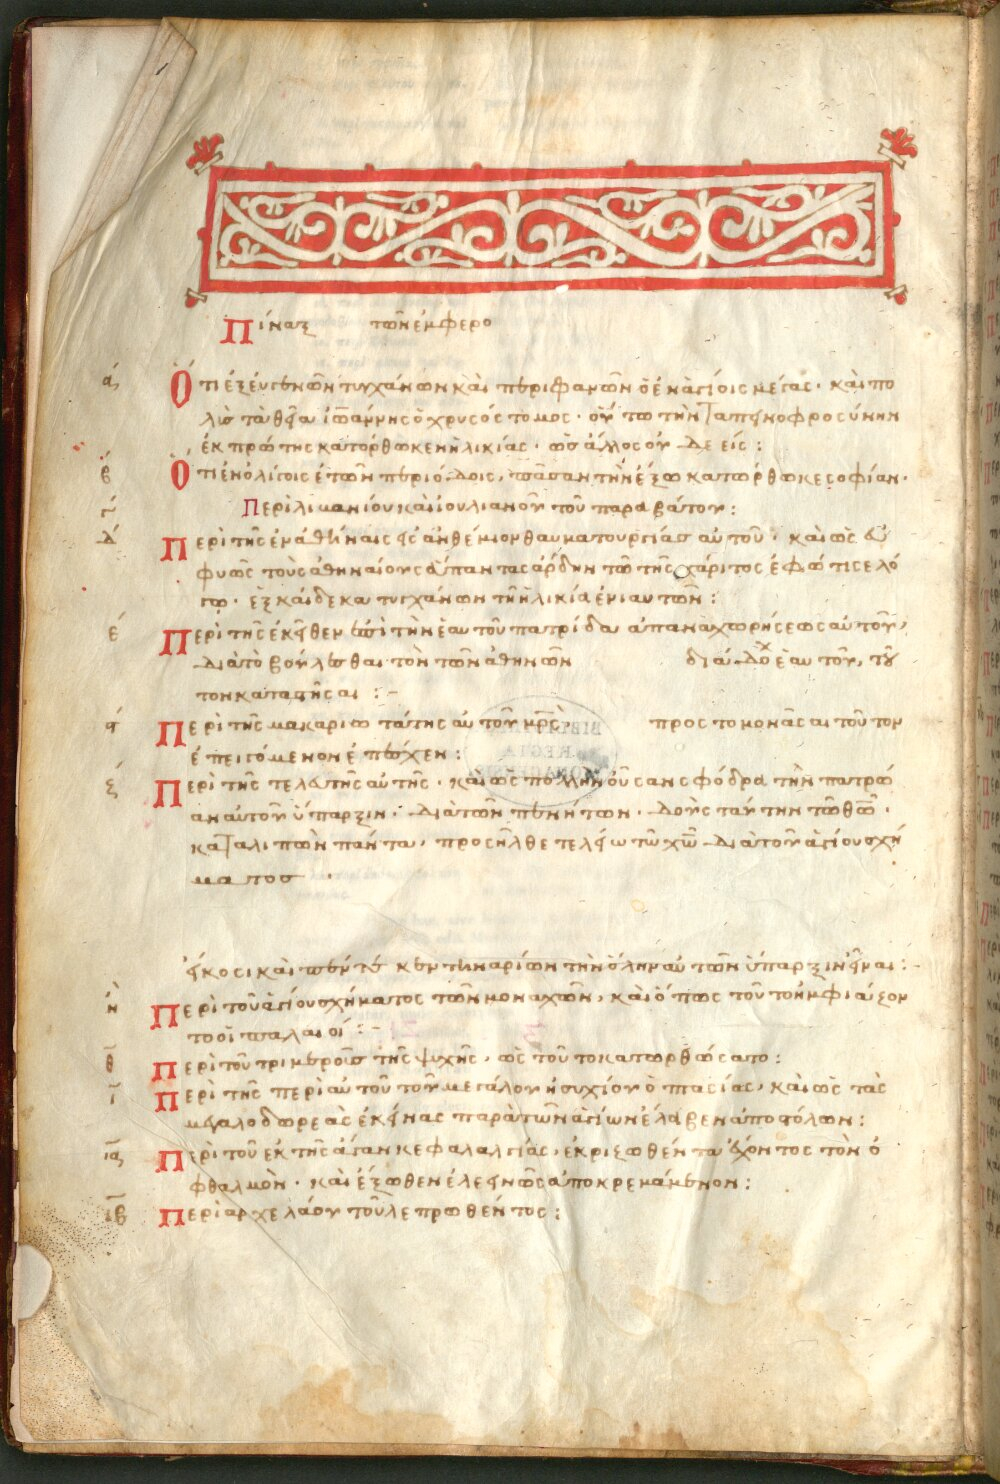 Πίναξ τῶν ἐμφερο
α΄ Ὅτι ἐξ εὐγενῶν τυγχάνων καὶ περιφανῶν ὁ ἐν ἁγίοις μέγας · καὶ πο
λὺς τὰ θεῖα ἰωάννης ὁ χρυσόστομος · οὕτω τὴν ταπεινοφροσύνην
ἐκ πρώτης κατόρθωκεν ἡλικίας · ὡς ἄλλος οὐδὲ εἷς :
β΄ Ὅτι ἐν ὀλίγοις ἐτῶν περιόδοις, πᾶσαν τὴν ἔξω κατώρθωκε σοφίαν ·
γ΄ Περὶ λιμανίου καὶ ἰουλιανοῦ τοῦ παραβάτου :
δ΄ Περὶ τῆς ἐν ἀθήναις εἰς ἀνθέμιον θαυματουργίας αὐτοῦ · καὶ ὡς εὐ
φυῶς τοὺς ἀθηναίους ἅπαντας ἄρδην τῶ τῆς χάριτος ἐφώτισε λό
γω · ἐξκαίδεκα τυγχάνων τῆ ἡλικία ἐνιαυτῶν :
ε΄ Περὶ τῆς ἐκεῖθεν ἐπὶ τὴν ἑαυτοῦ πατρίδα ἐπαναχωρήσεως αὐτοῦ,
διὰ τὸ βούλεσθαι τὸν τῶν ἀθηνῶν διάδοχ ἑαυτοῦ, τοῦ
τον καταστῆσαι : -
ς΄ Περὶ τῆς μακαριωτάτης αὐτοῦ μρς προς το μονάσαι τοῦτον
ἐπειγόμενον ἐπέχεν :
ζ΄ Περὶ τῆς τελευτῆς αὐτῆς · καὶ ὡς πολλὴν οὖσαν σφόδρα τὴν πατρώ
αν αὐτοῦ ὕπαρξιν · διὰ τῶν πενήτων · δοὺς ταύτην τῶ θῶ ·
καταλιπὼν πάντα, προσῆλθε τελείω τῶ χῶ διὰ τοῦ ἁγίου σχή
ματος ·
εἴκοσι καὶ πέντε κεντηναρίων τὴν ὅλην αὐτῶν ὕπαρξιν εἶναι : -
η΄ Περὶ τοῦ ἁγίου σχήματος τῶν μοναχῶν, καὶ ὅπως τοῦτο ἠμφιάζον
το οἱ παλαιοί : -
θ΄ Περὶ τοῦ τριμεροῦς τῆς ψυχῆς, ὡς τοῦτο κατωρθώσατο :
ι΄ Περὶ τῆς περὶ αὐτοῦ τοῦ μεγάλου ἡσυχίου ὀπτασίας, καὶ ὡς τὰς
μεγαλοδωρεὰς ἐκείνας παρὰ τῶν ἁγίων ἔλαβεν ἀποστόλων :
ια΄ Περὶ τοῦ ἐκ τῆς ἄγαν κεφαλαλγίας, ἐκριζωθέντα ἔχοντος τὸν ὀ
φθαλμὸν · καὶ ἔξωθεν ἐλεεινῶς ἀποκρεμάμενον :
ιβ΄ Περὶ ἀρχελάου τοῦ λεπρωθέντος :